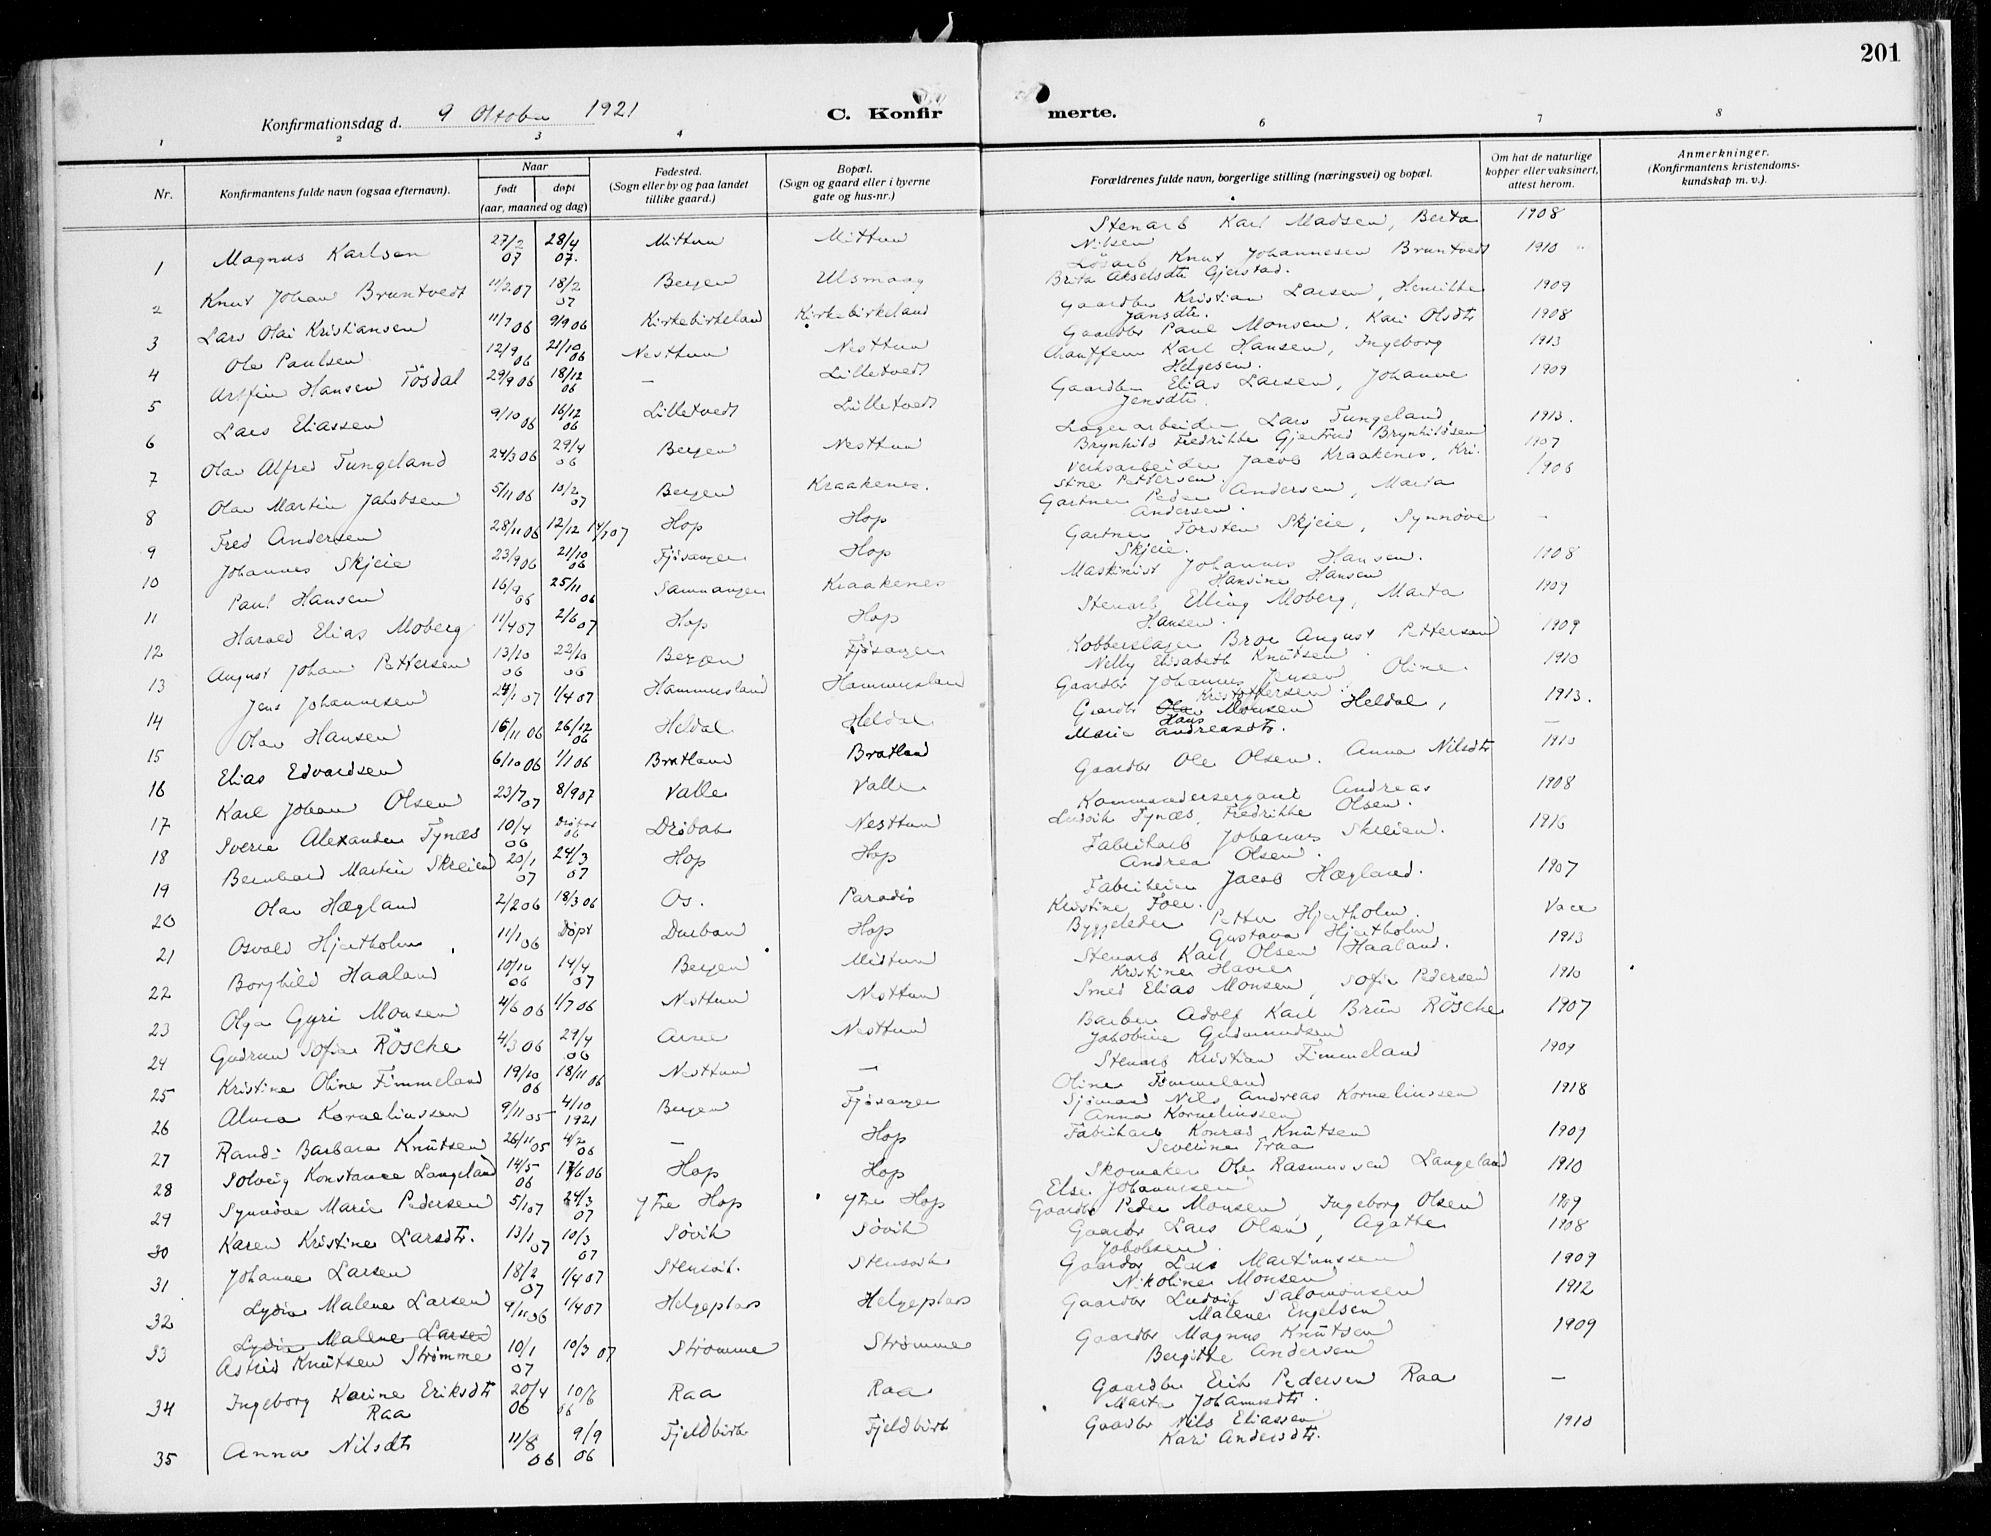 201
Konfirmationsdag d. 9 Oktober 1921
C. Konfirmerte.
1 2 3 4 6 7 8
Nr. Konfirmantens fulde navn (ogsaa efternavn). Naar født døpt (aar, maaned og dag) Fødested. (Sogn eller by og paa landet tillike gaard.) Bopæl. (Sogn og gaard eller i byerne gate og hus-nr.) Forældrenes fulde navn, borgerlige stilling (næringsvei) og bopæl. Om hat de naturlige kopper eller vaksinert, attest herom. Anmerkninger. (Konfirmantens kristendoms-kundskap m. v.).
1 Magnus Karlsen 27/2 07 28/4 07. Mittun Mittun Stenarb Karl Madsen, Berta Nilsen 1908
2 Knut Johan Bruntvedt 11/2 07 18/2 07 Bergen Ulsmaag Løsarb Knut Johannesen Bruntvedt Brita Akselsdtr Gjerstad. 1910
3 Lars Olai Kristiansen 11/7 06 9/9 06 Kirkebirkeland Kirkebirkeland Gaardbr Kristian Larsen, Henrikke Jansdtr. 1909
4 Ole Paulsen 12/9 06 21/10 06 Nesttun Nesttun Gaardbr Paul Monsen, Kari Olsdtr 1908
5 Arffin Hansen Tösdal 29/9 06 18/12 06 — Lilletvedt Chauffeur Karl Hansen, Ingeborg Helgesen. 1913
6 Lars Eliassen 9/10 06 16/12 06 Lilletvedt Lilletvedt Gaardbr Elias Larsen, Johanne Jensdtr. 1909
7 Olav Alfred Tungeland 24/3 06 29/4 06 Bergen Nesttun Lagerarbeider Lars Tungeland, Brynhild Fredrikke Gjertrud Brynhildsen 1913.
8 Olav Martin Jakobsen 5/11 06 10/2 07 Bergen Kraakenes. Verksarbeider Jacob Kraakenes, Kristine Pettersen. 1907
9 Fred Andersen 28/11 06 12/12 14/1 07 Hop Hop Gartner Peder Andersen, Marta Andersen. 1906
10 Johannes Skjeie 23/9 06 21/10 06 Fjösanger Hop Gartner Torsten Skjeie, Synnöve Skjeie. —
11 Paul Hansen 16/9 06 25/11 06 Samnanger Kraakenes Maskinist Johannes Hansen. Hansine Hansen 1908
12 Harald Elias Moberg 11/4 07 2/6 07 Hop Hop Stenarb Elling Moberg, Marta Hansen. 1909
13 August Johan Pettersen 13/10 06 22/10 06 Bergen Fjösanger Kobberslager Broe August Pettersen Nelly Elisabeth Knutsen. 1909
14 Jens Johannesen 24/1 07 1/4 07 Hammersland Hammersland Gaardbr Johannes Jensen Oline Kristoffersen. 1910
15 Olav Hansen 16/11 06 26/12 06 Heldal Heldal Gaardbr Ola Hans Monsen Heldal, Marie Andreasdtr. 1913.
16 Elias Edvardsen 6/10 06 1/1 06 Bratland Bratland —
17 Karl Johan Olsen 23/7 07 8/9 07 Valle Valle Gaardbr Ole Olsen. Anna Nilsdtr 1913
18 Sverre Alexander Tynæs 10/4 06 06 Dröbak Nesttun Kommandersergant Andreas Ludvik Tynæs, Fredrikke Olsen. 1908
19 Bernhard Martin Skreien 20/1 07 24/3 07 Hop Hop Fabrikarb Johannes Skreien. Andrea Olsen. 1916
20 Olav Hægland 2/2 06 18/3 06 Os. Paradis Fabrikeier Jacob Hægland. Kristine Foer. 1907
21 Osvald Hjertholm 11/1 06 Döpt Durban Hop Byggeleder Petter Hjertholm. Gustava Hjertholm Vacc
22 Borghild Haaland 10/10 06 14/4 07 Bergen Midtun Stenarb Karl Olsen Haaland. Kristine Havre 1913
23 Olga Gyri Monsen 4/6 06 1/7 06 Nesttun Nesttun Smed Elias Monsen, Sofie Pedersen 1910
24 Gudrun Sofie Röscke 4/3 06 29/4 06 Arne Nesttun Barber Adolf Karl Brün Röscke Jakobine Gudmundsen 1907
25 Kristine Oline Fimmeland 19/10 06 18/11 06 Nesttun — Stenarb Kristian Fimmeland Oline Fimmeland 1909
26 Alma Korneliussen 9/11 05 4/10 1921 Bergen Fjösanger Sjömand Nils Andreas Korneliussen Anna Korneliussen 1918
27 Randi Barbara Knutsen 26/11 05 4/2 06 — Hop Fabrikarb Konrad Knutsen Severine Traa 1909
28 Solveig Konstance Langeland 14/5 06 17/6 06 Hop Hop Skomaker Ole Rasmussen Langeland Else Johannesen 1910
29 Synnöve Marie Pedersen 5/1 07 24/3 07 Ytre Hop Ytre Hop Gaardbr Peder Monsen, Ingeborg Olsen 1909
30 Karen Kristine Larsdtr. 13/1 07 10/3 07 Søvik Søvik Gaardbr Lars Olsen, Agathe Jakobsen. 1908
31 Johanne Larsen 18/2 07 1/4 07 Stensvik. Stensvik Gaardbr Lars Martinussen Nikoline Monsen 1909
32 Lydia Malene Larsen 9/11 06 1/4 07 Helgeplass Helgeplass Gaardbr Ludvik Salomonsen Malene Engelsen 1912
33 Lydia Malene Larsen Astrid Knutsen Strømme 10/1 07 10/3 07 Strømme Strømme Gaardbr Magnus Knutsen Bergitte Andersen 1909
34 Ingeborg Karine Eriksdtr Raa 20/4 06 10/6 06 Raa Raa Gaardbr Erik Pedersen Raa Marta Johannesdtr. —
35 Anna Nilsdtr 11/8 06 9/9 06 Fjeldbirk Fjeldbirk Gaardbr Nils Eliassen Kari Andersdtr. 1910